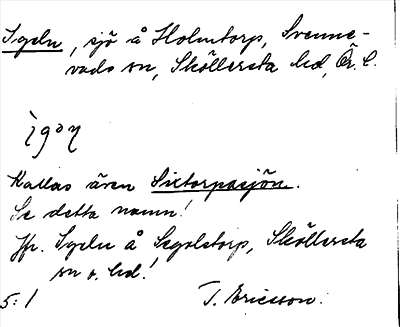 Igeln, sjö å Holmtorp, Svenne-
vads sn, Sköllersta hd, Ör. l.
Kallas även Sixtorpasjön.
Se detta namn!
Jfr. Igeln å Segolstorp, Sköllersta
sn o. hd!
5:1 T. Ericsson.